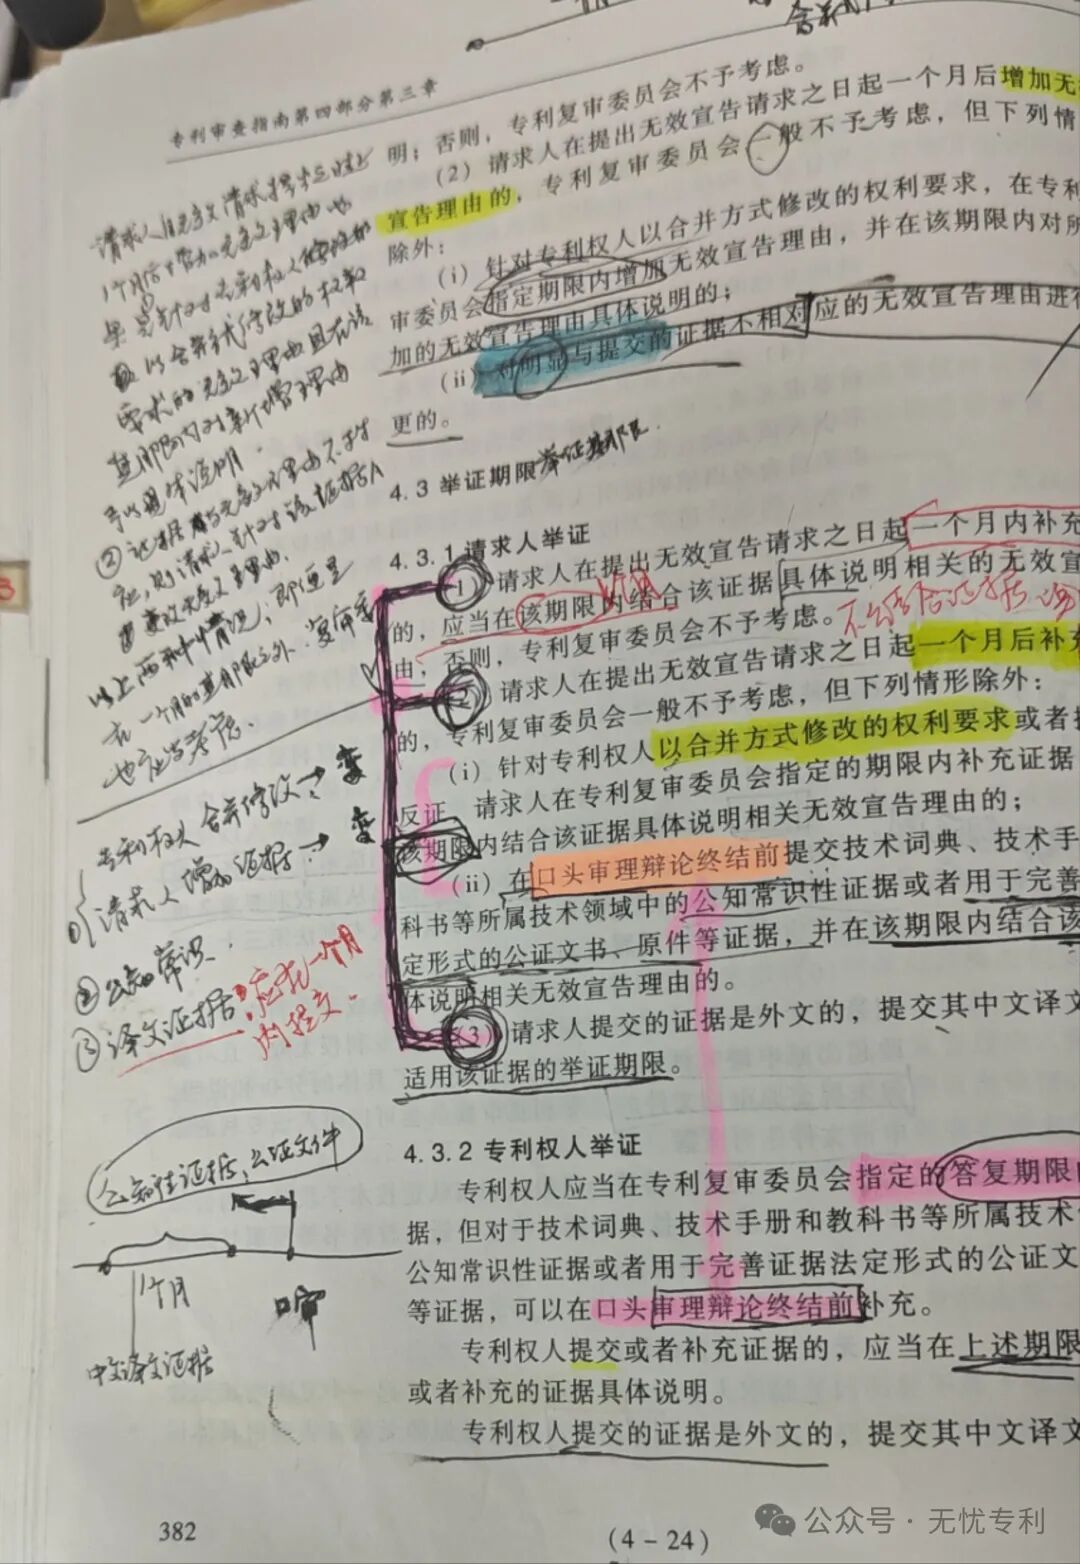 专利审查指南第四部分第三章
明；否则，专利复审委员会不予考虑。
(2) 请求人在提出无效宣告请求之日起一个月后增加无
宣告理由的，专利复审委员会一般不予考虑，但下列情
除外：
(i) 针对专利权人以合并方式修改的权利要求，在专利
审委员会指定期限内增加无效宣告理由，并在该期限内对所
加的无效宣告理由具体说明的；
(ii) 对明显与提交的证据不相对应的无效宣告理由进行
更的。
4.3 举证期限 举证期限.
4.3.1 请求人举证
(1) 请求人在提出无效宣告请求之日起一个月内补充
的，应当在该期限内结合该证据具体说明相关的无效宣
由，否则，专利复审委员会不予考虑。
不结合证据
(2) 请求人在提出无效宣告请求之日起一个月后补充
的，专利复审委员会一般不予考虑，但下列情形除外：
(i) 针对专利权人以合并方式修改的权利要求或者
反证 请求人在专利复审委员会指定的期限内补充证据
该期限内结合该证据具体说明相关无效宣告理由的；
(ii) 在口头审理辩论终结前提交技术词典、技术手
科书等所属技术领域中的公知常识性证据或者用于完善
定形式的公证文书、原件等证据，并在该期限内结合该
体说明相关无效宣告理由的。
(3) 请求人提交的证据是外文的，提交其中文译文
适用该证据的举证期限。
4.3.2 专利权人举证
专利权人应当在专利复审委员会指定的答复期限
据，但对于技术词典、技术手册和教科书等所属技术
公知常识性证据或者用于完善证据法定形式的公证文
等证据，可以在口头审理辩论终结前补充。
专利权人提交或者补充证据的，应当在上述期限
或者补充的证据具体说明。
专利权人提交的证据是外文的，提交其中文译文
请求人自无效请求提出之日起
1个月后增加无效理由的
以合并方式修改的权利
要求的无效理由且在该
期限内对新增理由
予以具体说明.
② 证据与无效理由不对
应，则请求人针对该证据
变更无效理由.
以上两种情况，即便是
在一个月的期限之外，复审委
也应当考虑.
① 专利权人合并修改→变
请求人增加证据→变
② 公知常识.
③ 译文证据：应在一个月
内提交.
公知性证据、公证文件
1个月
口审
中文译文证据
382
(4－24)
公众号·无忧专利